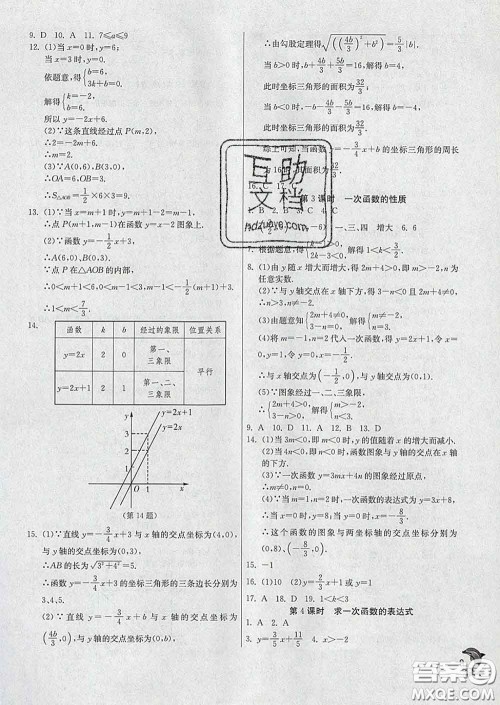 9. D  10. A  11. 7≤a≤9
12. (1)当 x=0时,y=6;
当 x=3时,y=0.
依题意,得{b=6, 3k+b=0.
解得{k=-2, b=6.
所以 y=-2x+6.
(2)∵这条直线经过点 P(m,2),
∴2=-2m+6.
∴m=2.
(3)∵A(0,6),B(3,0),
∴OA=6,OB=3.
∴S△AOB=1/2×6×3=9.
13. (1)∵x=m+1时,y=m-1,
∴点 P(m+1,m-1)在函数 y=x-2 图象上.
(2)∵函数 y=-1/2x+3,
∴A(6,0),B(0,3).
∵点 P 在△AOB的内部,
∴0<m+1<6,0<m-1<-1/2(m+1)+3.
∴1<m<7/3.
14.
函数 k b 经过的象限 位置关系
y=2x 2 0 第一、三象限 平行
y=2x+1 2 1 第一、二、三象限
y y=2x+1
y=2x
3
2
1
O 1 x
(第14题)
15. (1)∵直线 y=-3/4x+3 与 x 轴的交点坐标为(4,0),
与 y 轴的交点坐标为(0,3),
∴AB 的长为√(3²+4²)=5.
∴函数 y=-3/4x+3 的坐标三角形的三条边长分别为
3,4,5.
(2)∵直线 y=-3/4x+b 与 x 轴的交点坐标为
(4b/3,0),与 y 轴的交点坐标为(0,b),
∴由勾股定理得√((4b/3)²+b²)=5/3|b|.
当 b>0时,b+4b/3+5b/3=16,解得 b=4,
此时坐标三角形的面积为32/3;
当 b<0时,-b-4b/3-5b/3=16,解得 b=-4,
此时坐标三角形的面积为32/3.
综上可知,当函数 y=-3/4x+b 的坐标三角形的周长
为16时,其面积为32/3.
16. C  17.
第3课时 一次函数的性质
1. B  2.
-6) 一、三、四 增大 6. 6
7. 根据题意,得
解得1<b<2.
8. (1)由 y 随 x 增大而增大,得2m+4>0,即m>-2,n为
任意实数.
(2)∵与 y 轴的交点在 x 轴下方,得2m+4≠0,3-n<0,
∴n>3,m≠-2.
(3)由题意知{2m+4≠0, 3-n=0, 解得{m≠-2, n=3.
(4)当 m=-1,n=2时,代入一次函数得 y=2x+1,令
x=0,得 y=1,令 y=0,得 x=-1/2.
∴与 x 轴交点为(-1/2,0),与 y 轴交点为(0,1).
(5)∵图象经过一、二、三象限,
∴{2m+4>0, 3-n>0, 解得{m>-2, n<3.
9. A  10. D  11. A  12. B  13. D
14. (1)当3m<0,即m<0时,y的值随着 x 的增大而减小.
(2)当4n<0,即n<0时,函数图象与 y 轴的交点在 x 轴
的下方.
(3)∵一次函数 y=3mx+4n 的图象经过原点,
∴m≠0,n=0.
(4)∵当 m=1,n=2时,一次函数的表达式为 y=3x+8,
∴这个函数的图象与两坐标轴的交点坐标分别为
(0,8),(-8/3,0).
15. -1
16. (1)10 (2)y=2/3x+1或 y=1
17. A  18. D  19. 1<k<3
第4课时 求一次函数的表达式
1. A  2. A
3. y=3/2x-3  4. x>-2
互助
文档
hdzuoye.com
答案圈
MXQE.COM